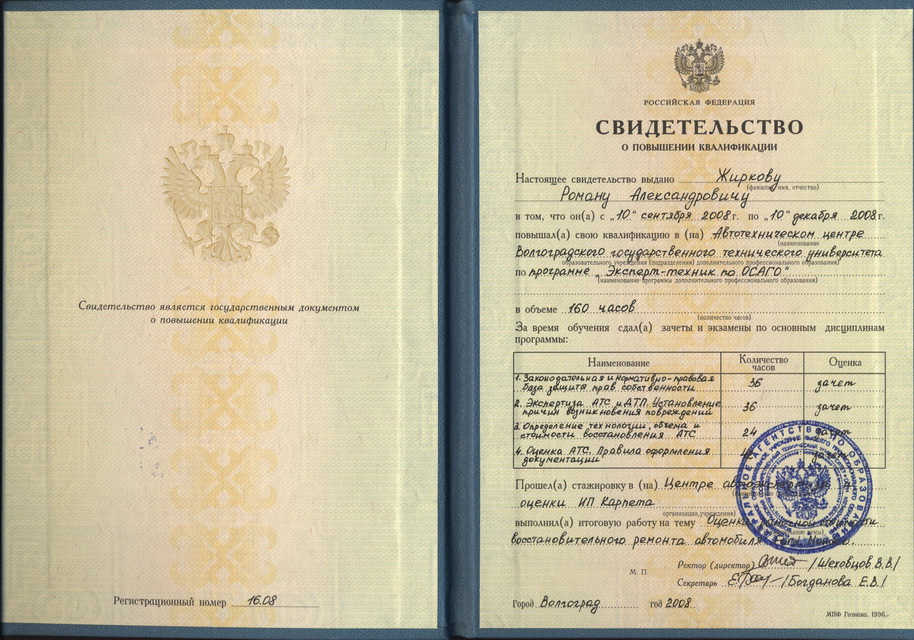 Свидетельство является государственным документом
о повышении квалификации
Регистрационный номер 16.08
РОССИЙСКАЯ ФЕДЕРАЦИЯ
СВИДЕТЕЛЬСТВО
О ПОВЫШЕНИИ КВАЛИФИКАЦИИ
Настоящее свидетельство выдано Жиркову
(фамилия, имя, отчество)
Роману Александровичу
в том, что он(а) с „10" сентября 2008 г. по „10" декабря 2008 г.
повышал(а) свою квалификацию в (на) Автотехническом центре
(наименование
Волгоградского государственного технического университета
образовательного учреждения (подразделения) дополнительного профессионального образования)
по программе „Эксперт-техник по ОСАГО"
(наименование программы дополнительного профессионального образования)
в объеме 160 часов
(количество часов)
За время обучения сдал(а) зачеты и экзамены по основным дисциплинам
программы:
Наименование Количество часов Оценка
1. Законодательная и нормативно-правовая
база защита прав собственности 36 зачет
2. Экспертиза АТС и ДТП. Установление
причин возникновения повреждений 36 зачет
3. Определение технологии, объема и
стоимости восстановления АТС 24 зачет
4. Оценка АТС. Правила оформления
документации
Прошел(а) стажировку в (на) Центре
оценки ИП Карпета
организации, учреждения)
выполнил(а) итоговую работу на тему Оценка
восстановительного ремонта автомобиля
Ректор (директор) /Шеховцов В.В./
М. П.
Секретарь /Богданова Е.В./
Город Волгоград год 2008
МПФ Гознака. 1996.